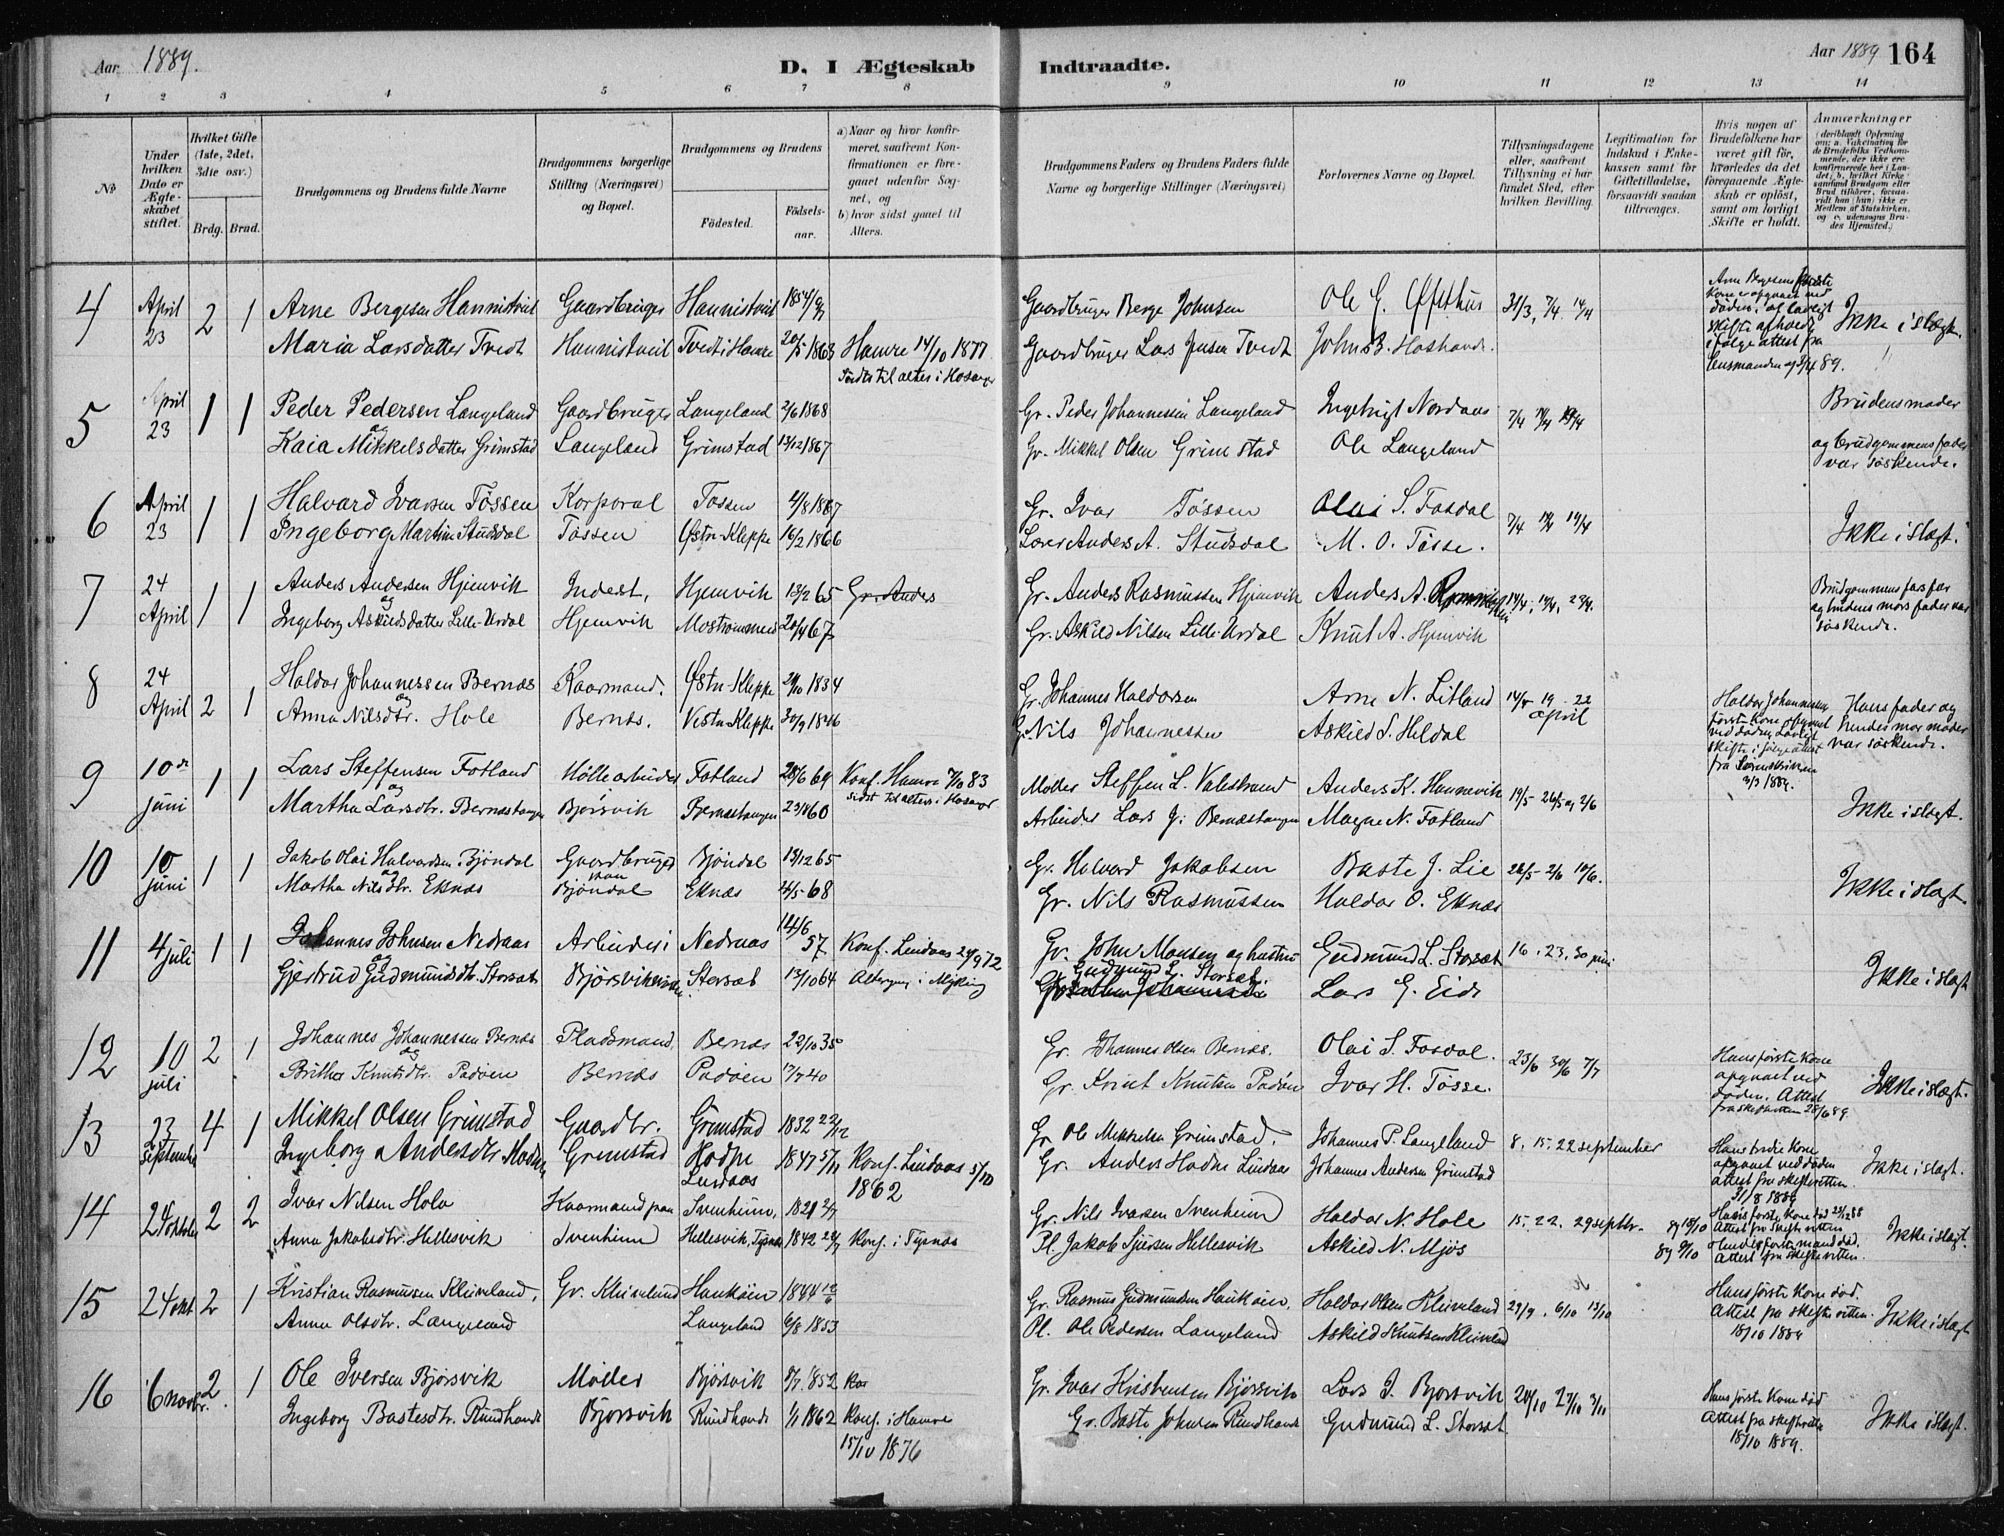 Aar 1889.
D. I Ægteskab Indtraadte.
Aar 1889 164
1 2 3 4 5 6 7 8 9 10 11 12 13 14
No
Under hvilken Dato er Ægteskabet stiftet.
Hvilket Gifte (1ste, 2det, 3die osv.)
Brdg. Brud.
Brudgommens og Brudens fulde Navne
Brudgommens borgerlige Stilling (Næringsvei) og Bopæl.
Brudgommens og Brudens
Fødested.
Fødselsaar.
a) Naar og hvor konfirmeret, saafremt Konfirmationen er foregaaet udenfor Sognet, og
b) hvor sidst gaaet til Alters.
Brudgommens Faders og Brudens Faders fulde Navne og borgerlige Stillinger (Næringsvei)
Forlovernes Navne og Bopæl.
Tillysningsdagene eller, saafremt Tillysning ei har fundet Sted, efter hvilken Bevilling.
Legitimation for Indskud i Enkekassen samt for Giftetilladelse, forsaavidt saadan tiltrænges.
Hvis nogen af Brudefolkene har været gift før, hvorledes da det foregaaende Ægteskab er opløst, samt om lovligt Skifte er holdt.
Anmærkninger (deriblandt Oplysning om: a. Vakcination for de Brudefolks Vedkommende, der ikke ere konfirmerede her i Landet; b. hvilket Kirkesamfund Brudgom eller Brud tilhører, forsaavidt han (hun) ikke er Medlem af Statskirken, og c. udensogns Brudes Hjemsted.)
4 April 23 2 1 Arne Bergesen Hannisdvik Gaardbruger Hannisdvik 1854 Gaardbruger Berge Johnsen Ole G. Øfsthus 31/3, 7/4 14/4 Ikke i slægt.
Maria Larsdatter Tvedt Hannisdvik Tvedt i Hamre 20/5 1863 Hamre 14/10 1877 Gaardbruger Lars Jensen Tvedt John B. Hoshovde.
Sidst til alters i Hosanger
Arne Bergesens første Kone er afgaaet ved døden, at lovligt skifte afholdt ifølge attest fra lensmanden af 3/4 89.
5 April 23 1 1 Peder Pedersen Langeland Gaardbruger Langeland 2/6 1868 Gr. Peder Johannessen Langeland Ingebrigt Nordaas 7/4 14/4 19/4 Brudens moder
og
Kaia Mikkelsdatter Grimstad Langeland Grimstad 13/12 1867 Gr. Mikkel Olsen Grimstad Ole Langeland og brudgommens fader var søskende.
6 April 23 1 1 Halvard Ivarsen Tøssen Korporal Tøssen 4/8 1867 Gr. Ivar Tøssen Olai S. Fosdal 7/4 14/4 19/4
Ingeborg Martine Studsdal Tøssen Østre-Kleppe 16/2 1866 Lærer Anders A. Studsdal M. O. Tøsse. Ikke i slægt.
7 24 April 1 1 Anders Andersen Hjemvik Inderst, Hjemvik 13/2 65 Gr. Anders Gr. Anders Rasmussen Hjemvik Anders A. 14/4, 19/4, 22/4. Brudgommens farfar og brudens morsfader var søskende.
og
Ingeborg Askildsdatter Lille-Urdal Hjemvik Mostrømmen 20/4 67 Gr. Askild Nilsen Lille-Urdal Knut A. Hjemvik
8 24 April 2 1 Haldor Johannessen Bernæs Kaarmand. Østre-Kleppe 29/10 1834 Gr. Johannes Haldorsen Arne N. Litland 14/4 19. 22 april
og
Anna Nilsdtr. Hole Bernæs. Vestre-Kleppe 30/9 1846 Gr. Nils Johannessen Askild S. Heldal
Haldor Johannessens første kone afgaaet ved døden, Lovligt skifte, ifølge attest fra Sorenskriveren 3/3 1889. Hans fader og hendes mor moder var søskende.
9 10de juni 1 1 Lars Steffensen Fotland Møllearbeider Fotland 28/6 69 Konf. Hamre 7/10 83 Møller Steffen L. Valestrand Anders K. Hannevik 19/5 26/5 og 2/6
og
Martha Larsdtr. Bernæstangen Bjørsvik Bernæstangen 23/1 60 Sidst til alters i Hosanger Arbeider Lars J. Bernæstangen Magne N. Fotland Ikke i slægt.
10 10 juni 1 1 Jakob Olai Halvardsen Bjøndal Gaardbruger Bjøndal 13/12 65 Gr. Halvard Jakobsen Baste J. Lie 26/5 - 2/6 10/6.
og
Martha Nilsdtr. Eknæs Bjøndal Eknæs 4/5 68 Gr. Nils Rasmussen Haldor O. Eknæs Ikke i slægt.
11 4 juli 1 1 Johannes Johnsen Nedraas Arbeider i Nedraas 14/6 57. Konf. Lindaas 29/9 72 Gr. John Monsen og hustru Gudmund L. Storsæt 16. 23. 30 juni
og
Gjertrud Gudmundsdtr. Storsæt Bjørsviken Storsæt 13/10 64 Altergang i Myking Gudmund L. Storsæt. Lars G. Eide Ikke i slægt
12 10 juli 2 1 Johannes Johannessen Bernæs Pladsmand, Bernæs 22/10 35 Gr. Johannes Olsen Bernæs. Olai S. Fosdal. 23/6 30/6 7/7
og
Britha Knutsdtr. Padøen Bernæs Padøen 17/7 40 Gr. Knut Knutsen Padøen Ivar H. Tøsse.
Hans første kone afgaaet ved døden. Attest fra skifteretten 28/6 89. Ikke i slægt.
13 23 September 4 1 Mikkel Olsen Grimstad Gaardbr. Grimstad 1832 22/12 Gr. Ole Mikkelsen Grimstad. Johannes P. Langeland 8. 15. 22 september
Ingeborg Andersdtr Hodne Grimstad Hodne Lindaas 1847 5/11 Konf. Lindaas 5/10 1862 Gr. Anders Hodne Lindaas Johannes Andersen Grimstad
Hans tredie Kone afgaaet ved døden attest fra skifteretten 31/8 1889 Ikke i slægt.
14 24 oktober 2 2 Ivar Nilsen Hole Kaarmand paa Ivenheim, 1821 2/7 Gr. Nils Ivarsen Ivenheim Haldor N. Hole 15. 22. 29 septbr.
Anna Jakobsdtr. Hellesvik Ivenheim Hellesvik, Tysnæs 1842 Konf. i Tysnæs Pl. Jakob Sjursen Hellesvik Askild N. Mjøs
Hans første Kone død 23/12 88 Attest fra skifteretten 89 15/10 Hendes første mand død. Attest fra skifteretten. 89 9/10 Ikke i slægt.
15 24 okt 2 1 Kristian Rasmussen Kleiveland, Gr. Kleiveland Haukøen 1844 Gr. Rasmus Gudmundsen Haukøen. Haldor Olsen Kleiveland 29/9. 6/10 13/10
Anna Olsdtr. Langeland Langeland 6/8 1853 Pl. Ole Pedersen Langeland Askild Knutsen Kleiveland
Hans første Kone død. Attest fra skifteretten. 18/10 1889 Ikke i slægt
16 6 novbr. 2 1 Ole Iversen Bjørsvik Møller Bjørsvik 1852 Ko Gr. Ivar Kristensen Bjørsvik Lars J. Bjørsvik 20/10 27/10 3/11
Ingeborg Bastesdtr. Rundhovde Bjørsvik Rundhovde 1/1 1862 Konf. i Hamre 15/10 1876 Gr. Baste Johnsen Rundhovde Gudmund L. Storsæt
Hans første Kone død Attest fra skifteretten 18/10 1889. Ikke i slægt.